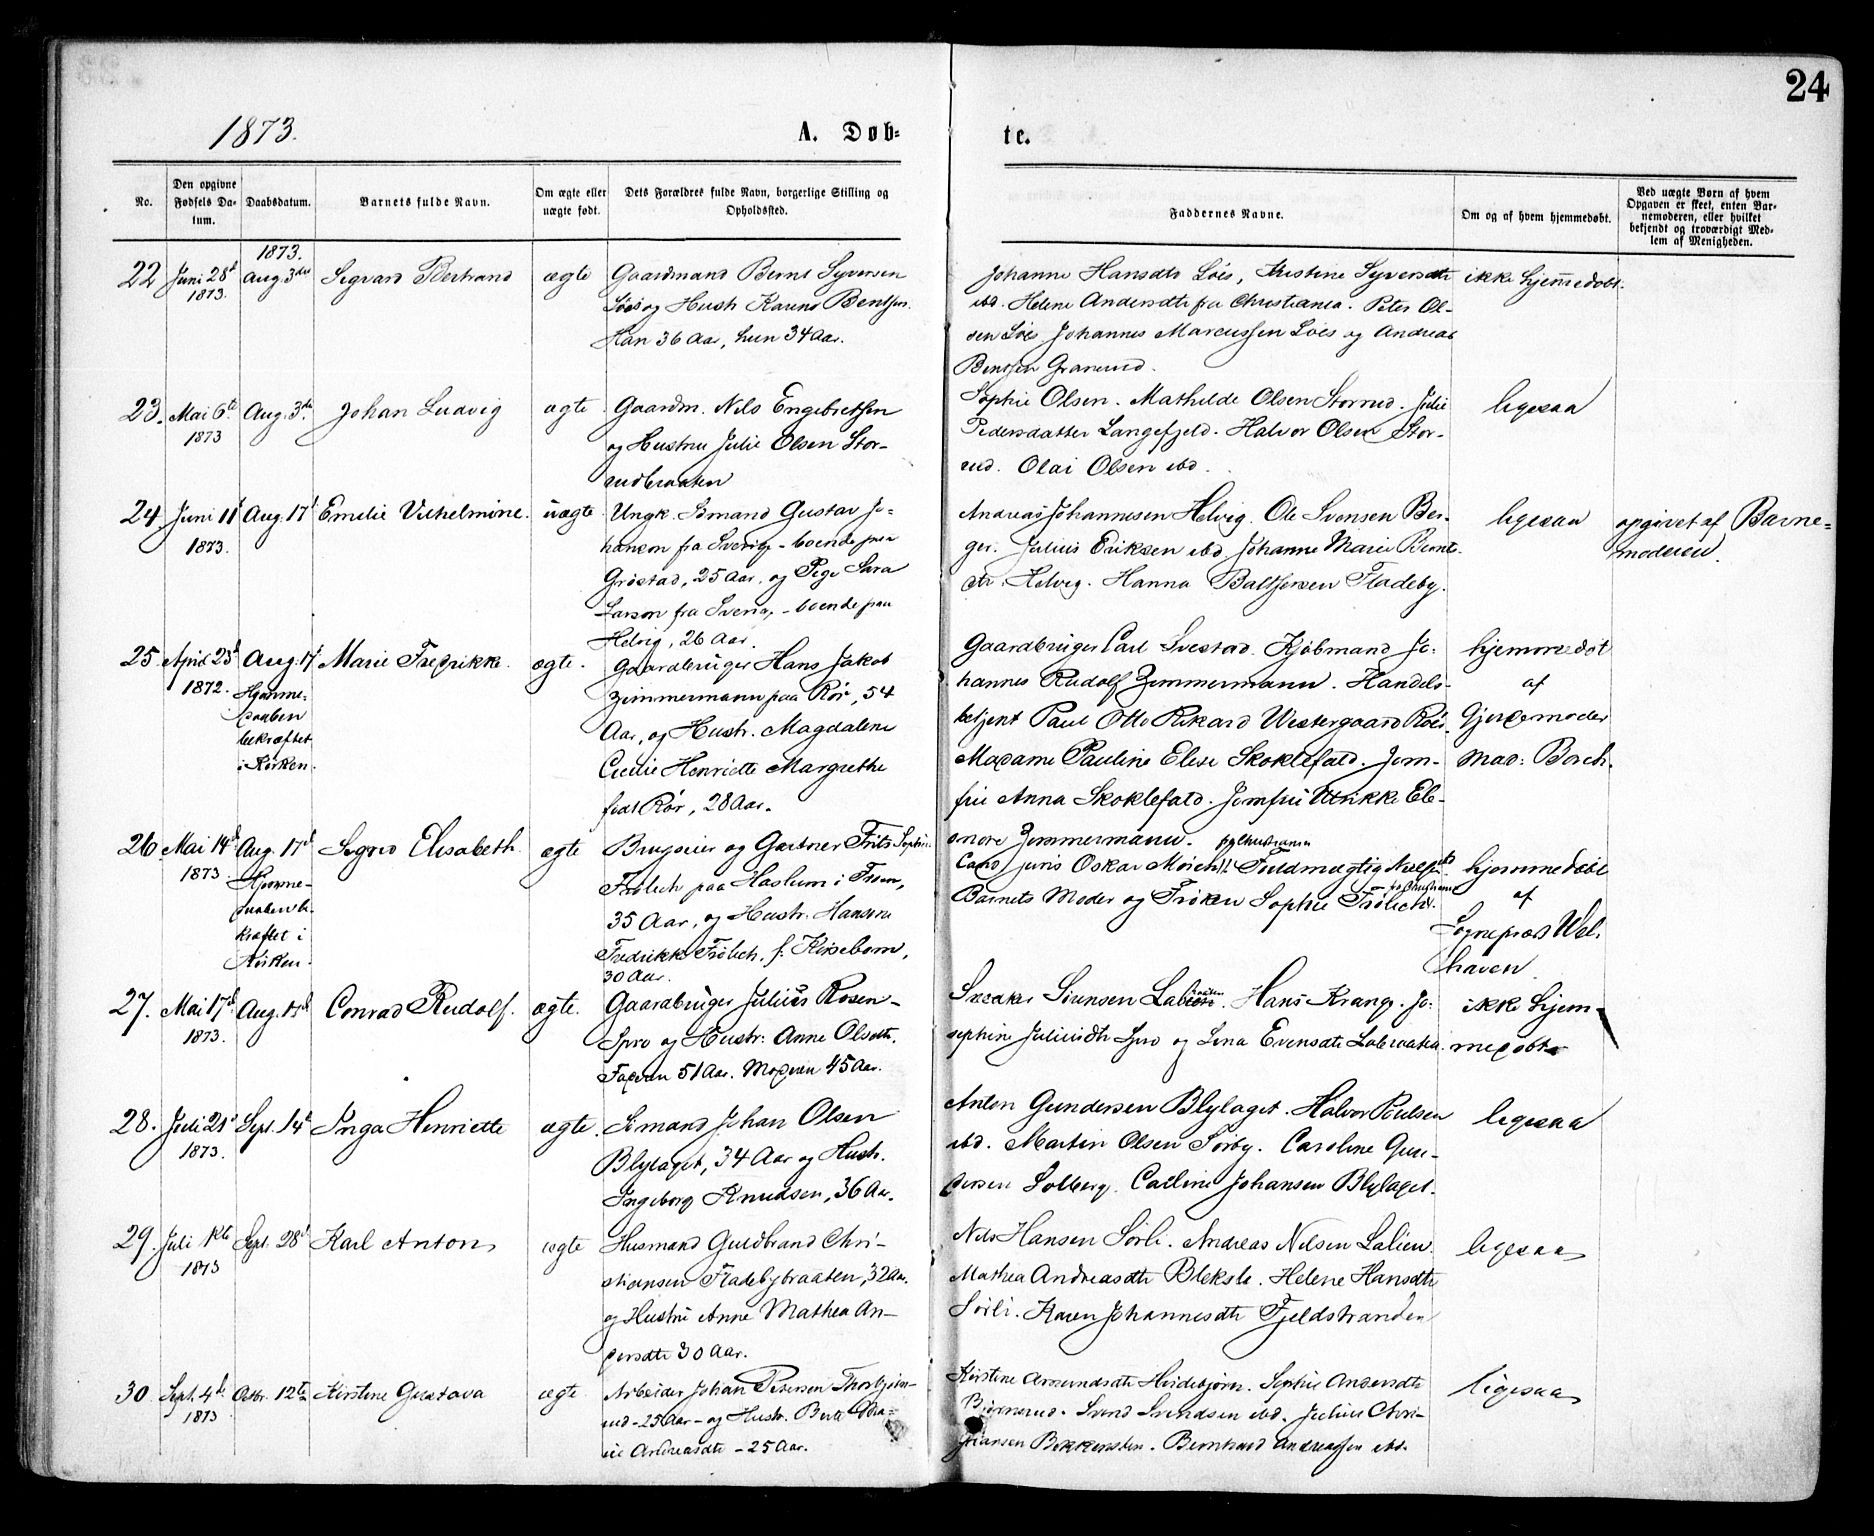 24
1873.
A. Døb-
te.
No.
Den opgivne Fødsels Da-
tum.
Daabsdatum.
Barnets fulde Navn.
Om ægte eller
uægte født.
Dets Forældres fulde Navn, borgerlige Stilling og
Opholdssted.
Faddernes Navne.
Om og af hvem hjemmedøbt.
Ved uægte Børn af hvem
Opgaven er skeet, enten Bar-
nemoderen, eller hvilket
bekjendt og troværdigt Med-
lem af Menigheden.
1873.
22 Juni 28d 1873. Aug. 3die Sigvard Bertrand ægte
Gaardmand Bernt Syversen
og Hustr. Karens Bentsen.
Han 36 Aar, hun 34 Aar.
Johanne Hansdtr Løes, Kristine Syversdtr
ibd. Helene Andersdtr fra Christiania. Peter Ol-
sen Løes Johannes Marcussen Løes og Andreas
Bentsen Granerud.
ikke hjemmedøbt.
23. Mai 6te 1873 Aug. 3die Johan Ludvig ægte
Gaardm. Nils Engebretsen
og Hustru Julie Olsen Stor-
rudbraaten
Sophie Olsen. Mathilde Olsen Storrud. Julie
Pedersdatter Langefjeld. Halvor Olsen Stor-
rud. Olai Olsen ibd.
ligesaa
24. Juni 11t 1873. Aug. 17d Emilie Vilhelmine. uægte.
Ungk. Sømand Gustav Jo-
hanson fra Sverig, - boende paa
Grøstad, 25 Aar, og Pige Sara
Larson fra Sverig, - boende paa
Helvig, 26 Aar.
Andreas Johannesen Helvig. Ole Svensen Ber-
ger. Julius Eriksen ibd. Johanne Marie Bernt-
dtr. Helvig. Hanna Baltsersen Fladeby.
ligesaa
opgivet af Barne-
moderen.
25. April 23d 1872. Aug. 17d Marie Fredrikke. ægte.
Hjemme-
daaben
bekræftet
i Kirken.
Gaardbruger Hans Jakob
Zimmermann paa Rør, 54
Aar, og Hustr. Magdalene
Cecilie Henriette Margrethe
født Rør, 28 Aar.
Gaardbruger Carl Svestad. Kjøbmand Jo-
hannes Rudolf Zimmermann. Handels-
betjent Paul Otto Rikard Westergaard Røer.
Madame Pauline Elise Skoklefald. Jom-
fru Anna Skoklefald. Jomfru Ulrikke Ele-
onore Zimmermann.
hjemmedøbt
af
Gjordemoder
Mad: Borch.
26. Mai 14d 1873. Aug. 17d Sigrid Elisabeth. ægte
Hjemme-
daaben be-
kræftet i
Kirken.
Brugseier og Gartner Frits Sophus
Frølich paa Haslum i Froen,
35 Aar, og Hustr: Hansine
Fredrikke Frølich, f. Kirsebom,
30 Aar.
Cand. juris Oskar Mørch. Fuldmægtig
Barnets Moder og Frøken Sophie Frølich.
hjemmedøbt
af
Sognepræst Wel-
haven.
27. Mai 17d 1873. Aug. 17d Conrad Rudolf. ægte.
Gaardbruger Julius Rosen-
Spro og Hustr: Anne Olsdtr.
Faderen 51 Aar. Moderen 45 Aar.
Hans Krange. Jo-
sephine Juliusdtr Spro og Lina Evensdtr Labraaten.
ikke hjem-
medøbt
28. Juli 21d 1873. Sept. 14d Inga Henriette ægte.
Sømand Johan Olsen
Blylaget, 34 Aar og Hustr.
Ingeborg Knudsen, 36 Aar.
Anton Gundersen Blylaget. Halvor Poulsen
ibd. Martin Olsen Sørby. Caroline Gun-
dersen Solberg. Carline Johansen Blylaget.
ligesaa
29. Juli 1ste 1873 Sept. 28d Karl Anton ægte
Husmand Guldbrand Chri-
stiansen Fladebybraaten, 32 Aar.
og Hustru Anne Mathea An-
dersdtr 30 Aar.
Nils Hansen Sørli. Andreas Nilsen Lalien.
Mathea Andreasdtr Bleksli. Helene Hansdtr
Sørli. Karen Johannesdtr Fjeldstranden
ligesaa
30 Sept. 4d 1873 Octbr. 12te Kirstine Gustava ægte
Arbeider Johan Petersen Thorbjørn-
rud - 25 Aar - og Hustr. Berte Ma-
rie Andreasdtr - 25 Aar.
Kirstine Hvidebjørn. Sophie Andersdtr
Bjørnerud. Svend Svendsen ibd. Julius Chri-
stiansen Bekkensten. Bernhard Andreassen ibd.
ligesaa